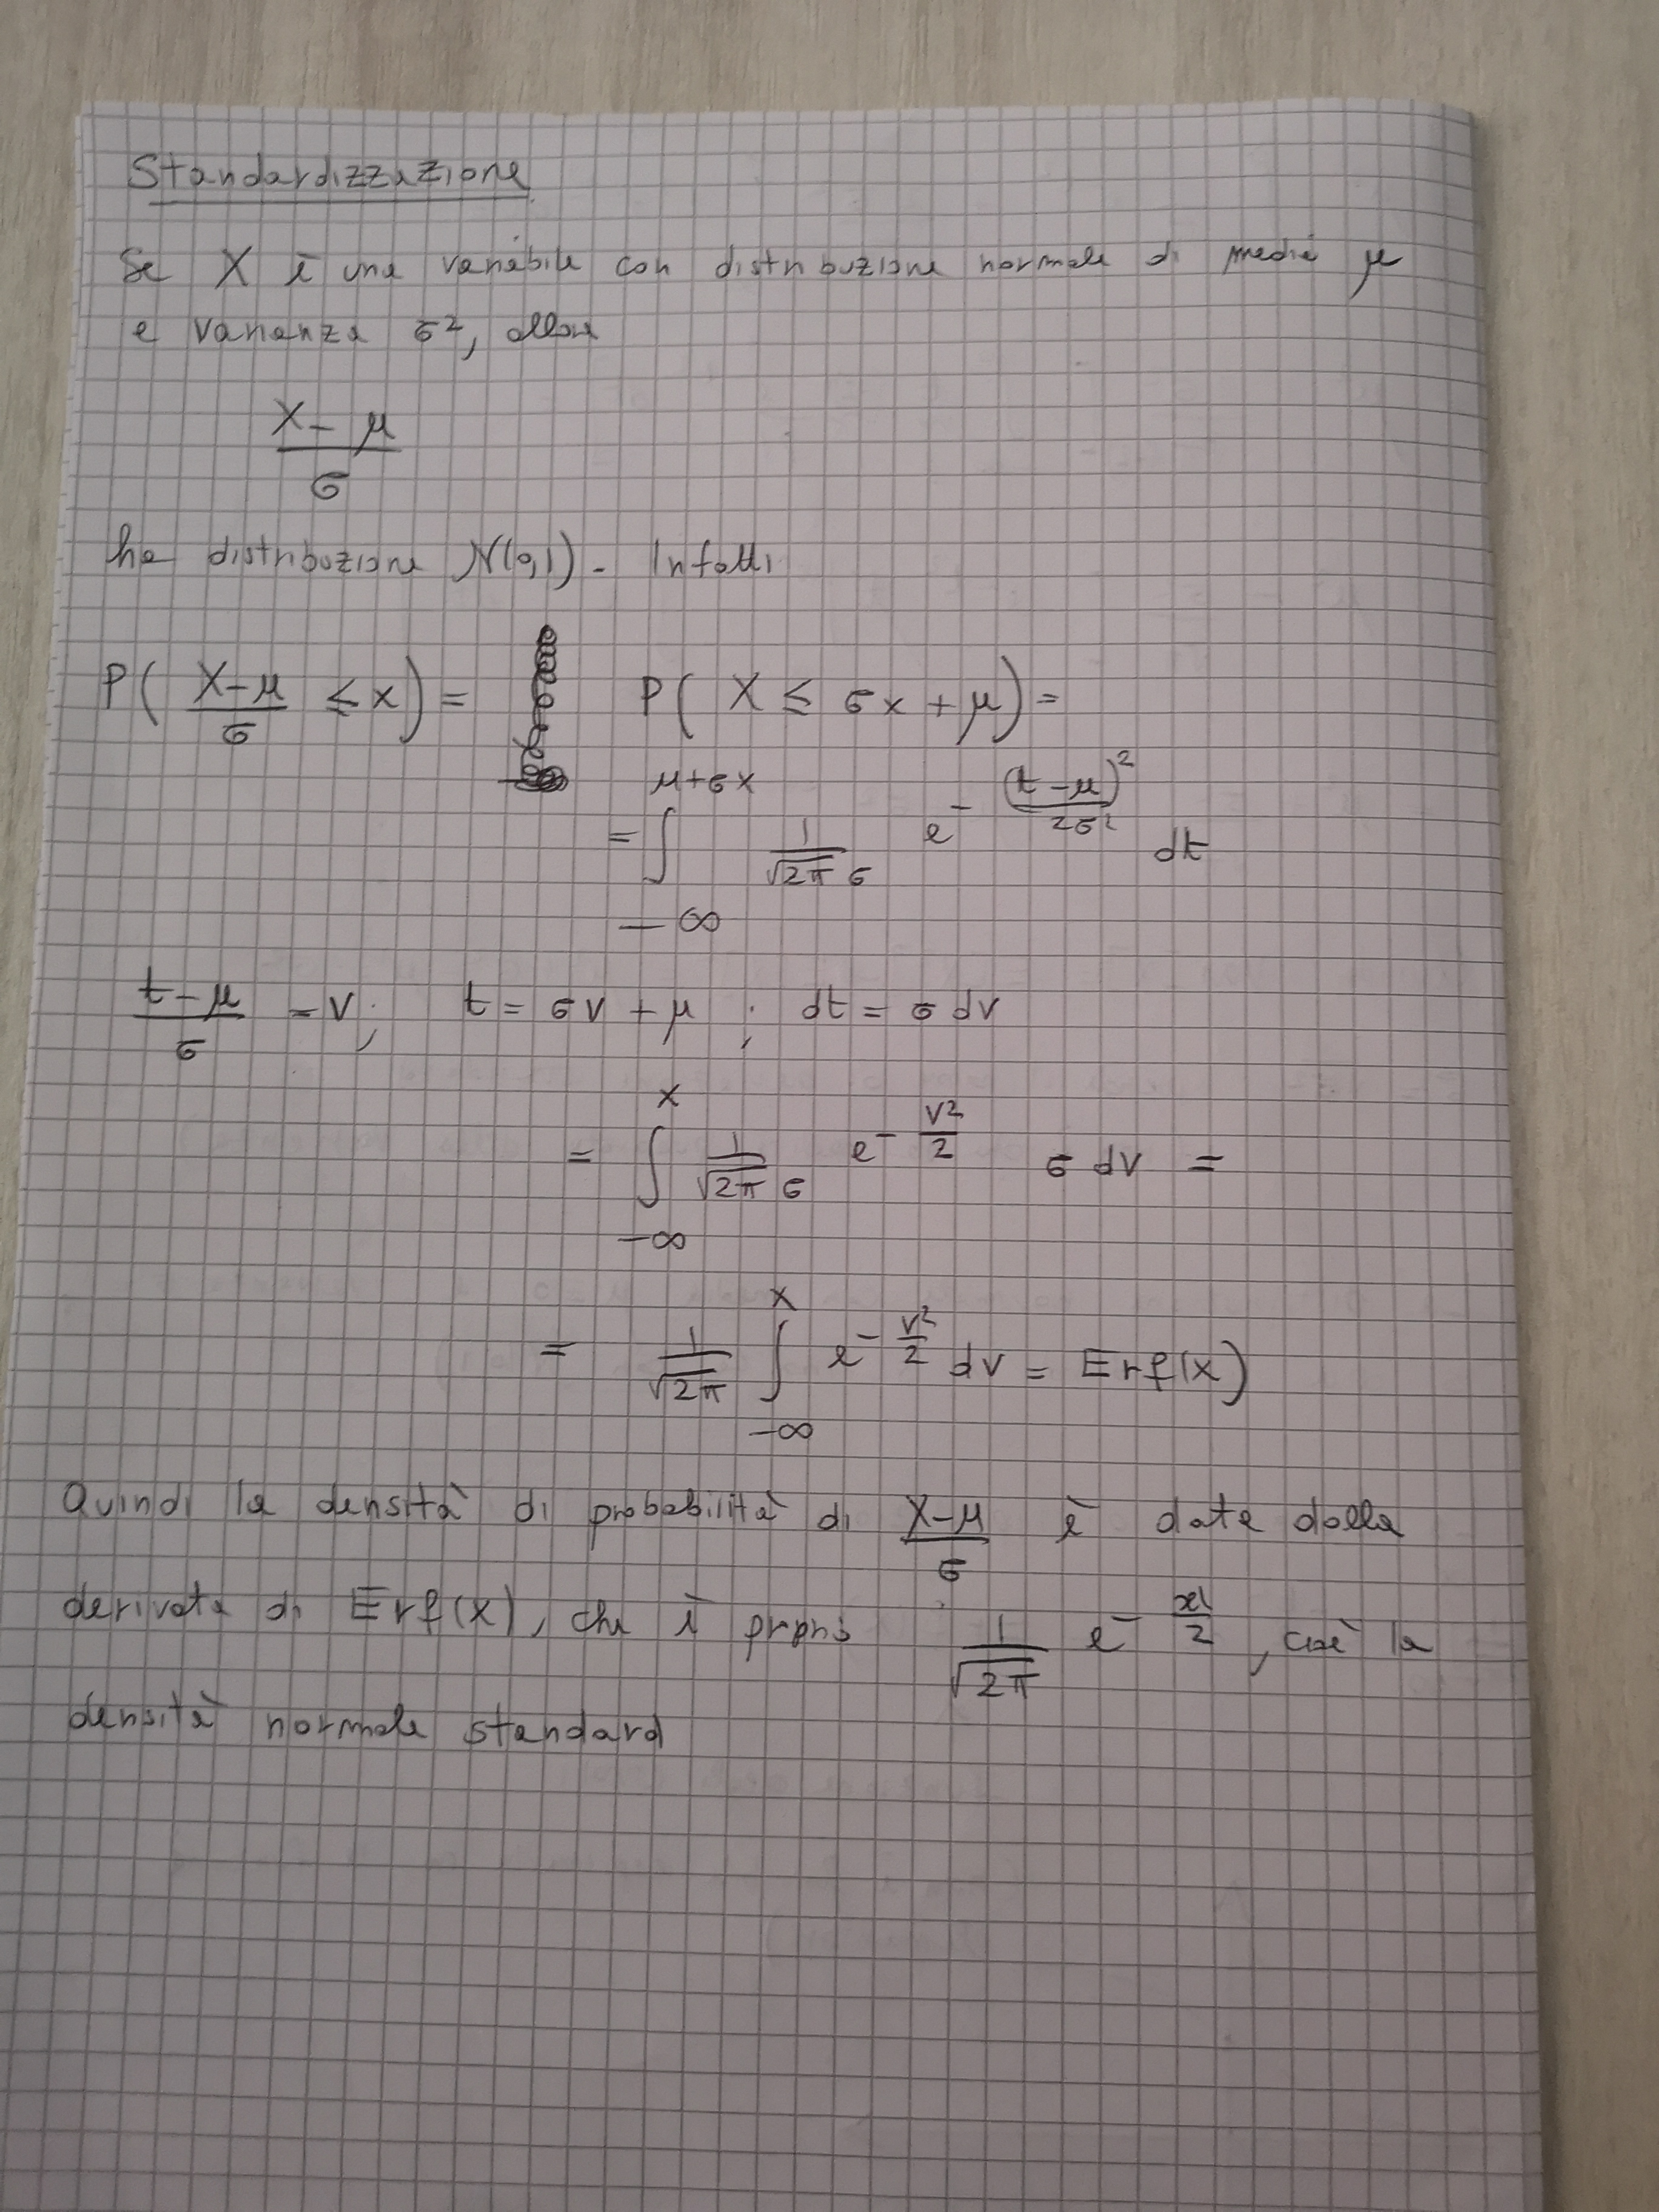 Standardizzazione
Se X è una variabile con distribuzione normale di media μ
e varianza σ², allora
X - μ
σ
ha distribuzione N(0,1). Infatti
P( (X-μ)/σ ≤ x ) = P( X ≤ σx + μ ) =
= ∫_{-∞}^{μ+σx} 1/(√2π σ) e^{-(t-μ)²/2σ²} dt
(t-μ)/σ = v; t = σv + μ ; dt = σ dv
= ∫_{-∞}^{x} 1/(√2π σ) e^{-v²/2} σ dv =
= 1/√2π ∫_{-∞}^{x} e^{-v²/2} dv = Erf(x)
Quindi la densità di probabilità di (X-μ)/σ è data dalla
derivata di Erf(x), che è proprio 1/√2π e^{-x²/2}, cioè la
densità normale standard